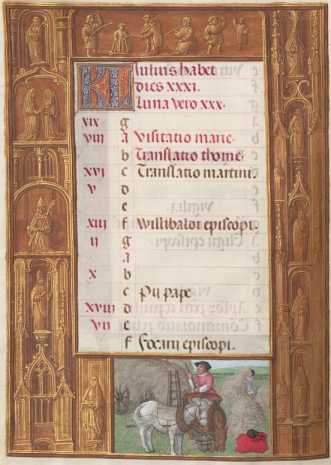 KL Iulius habet
dies XXXI.
Luna vero xxx.
xix g
viii a Visitatio marie.
b Translatio thome.
xvi c Translatio martini.
v d
e
xiii f Willibaldi episcopi.
ii g
a
x b
c Pii pape
xviii d
vii e
f